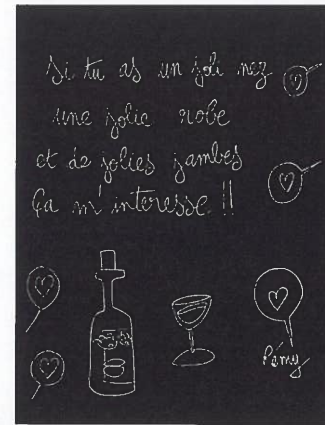 Si tu as un joli nez
une jolie robe
et de jolies jambes
Ça m'interesse !!